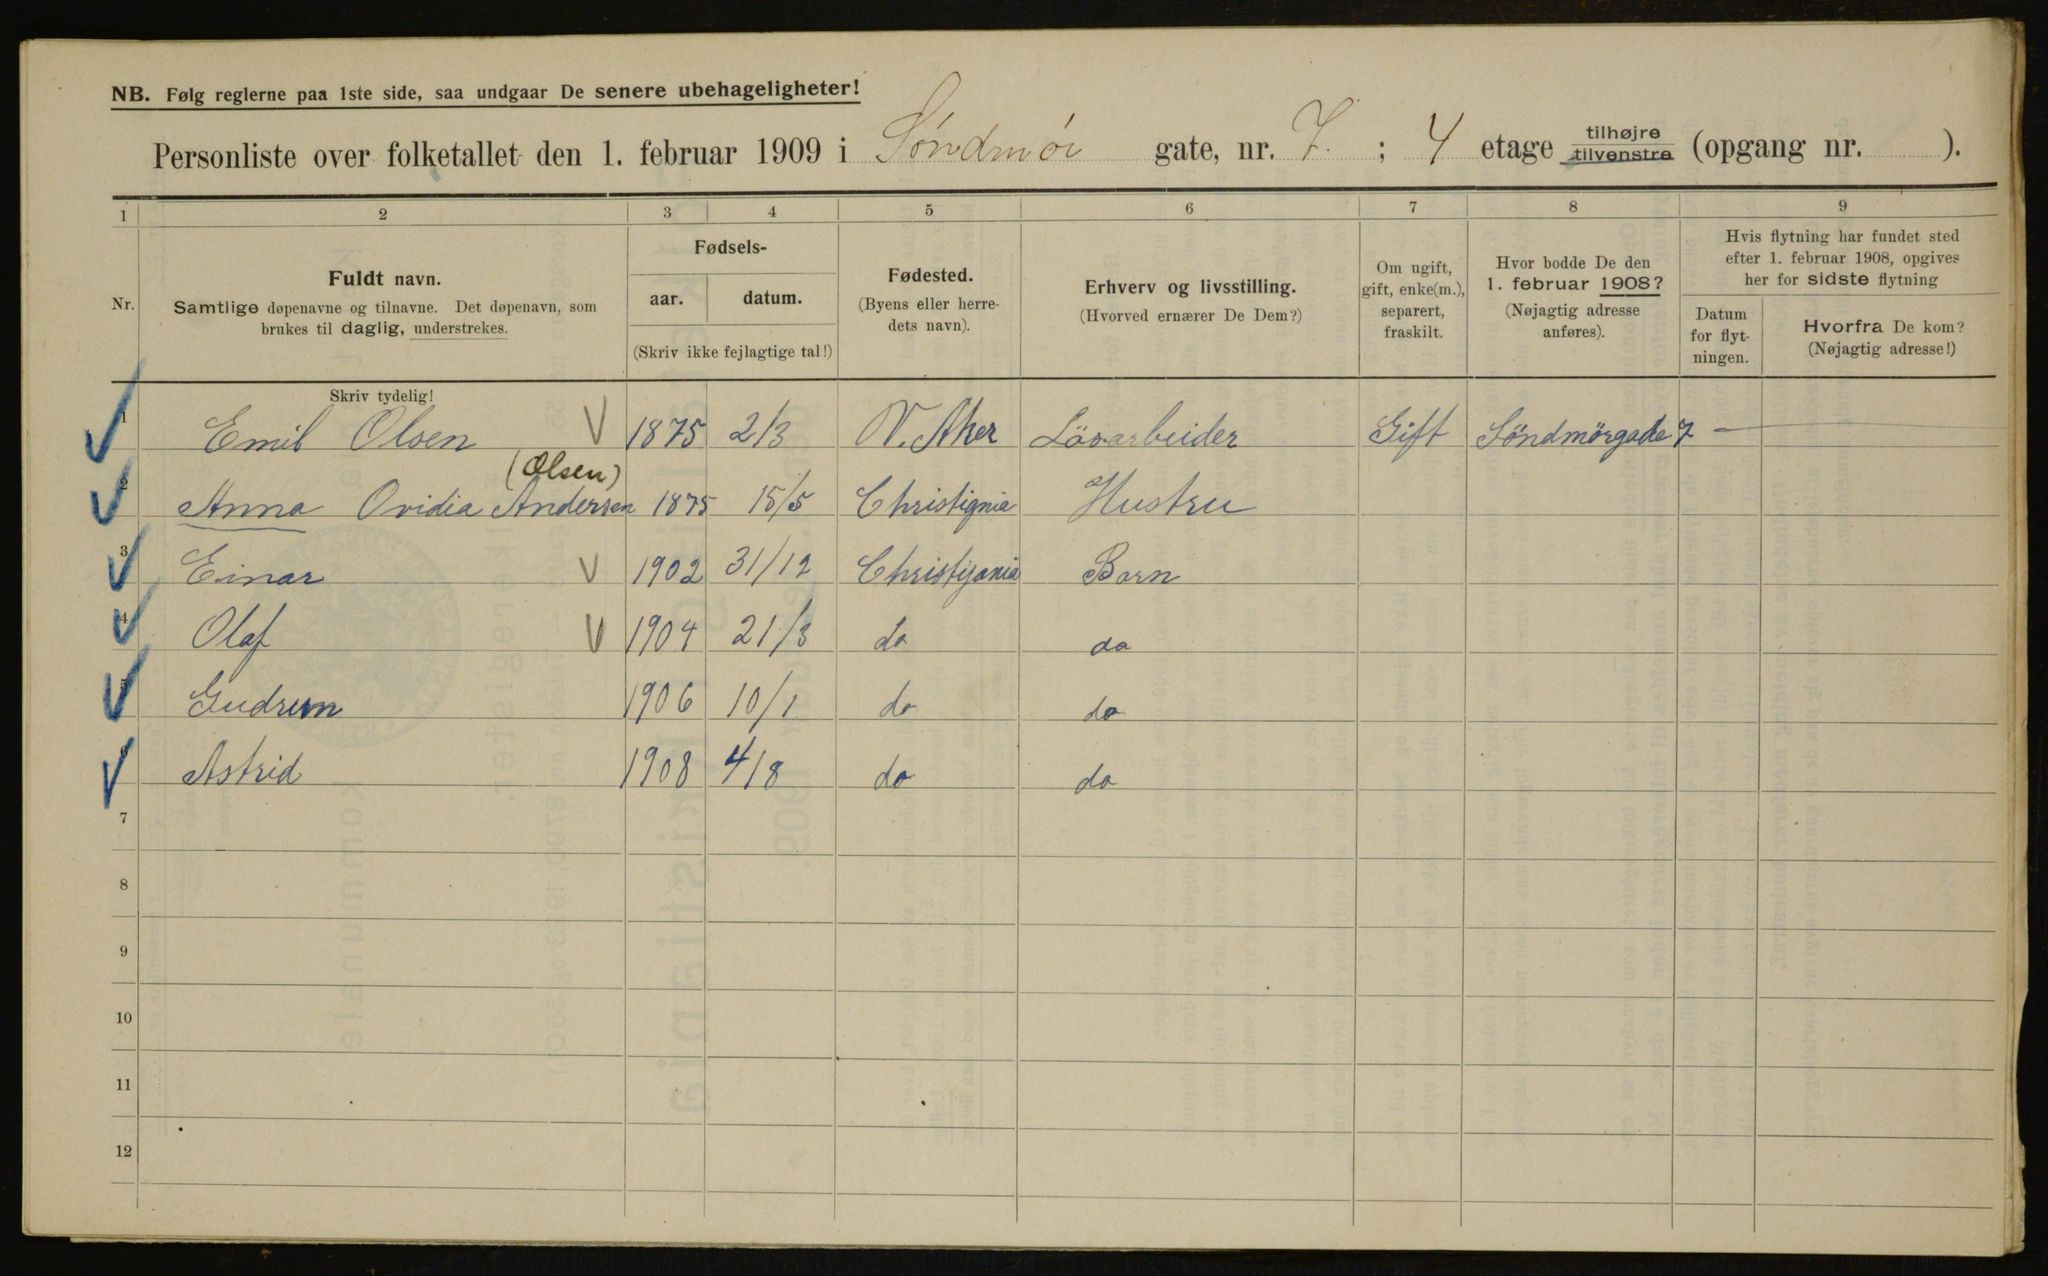 NB. Følg reglerne paa 1ste side, saa undgaar De senere ubehageligheter!
Personliste over folketallet den 1. februar 1909 i Söndmör gate, nr. 7. ; 4 etage tilhøjre tilvenstre (opgang nr. ).
1 2 3 4 5 6 7 8 9
Nr.
Fuldt navn.
Samtlige døpenavne og tilnavne. Det døpenavn, som
brukes til daglig, understrekes.
Fødsels-
aar. datum.
(Skriv ikke fejlagtige tal!)
Fødested.
(Byens eller herre-
dets navn).
Erhverv og livsstilling.
(Hvorved ernærer De Dem?)
Om ugift,
gift, enke(m.),
separert,
fraskilt.
Hvor bodde De den
1. februar 1908?
(Nøjagtig adresse
anføres).
Hvis flytning har fundet sted
efter 1. februar 1908, opgives
her for sidste flytning
Datum
for flyt-
ningen.
Hvorfra De kom?
(Nøjagtig adresse!)
Skriv tydelig!
1 Emil Olsen 1875 2/3 V. Aker Lösarbeider Gift Söndmörgade 7 —
(Olsen)
2 Anna Ovidia Andersen 1875 15/5 Christignia Hustru
3 Einar 1902 31/12 Christijania Barn
4 Olaf 1904 21/3 do do
5 Gudrun 1906 10/1 do do
6 Astrid 1908 4/8 do do
7
8
9
10
11
12